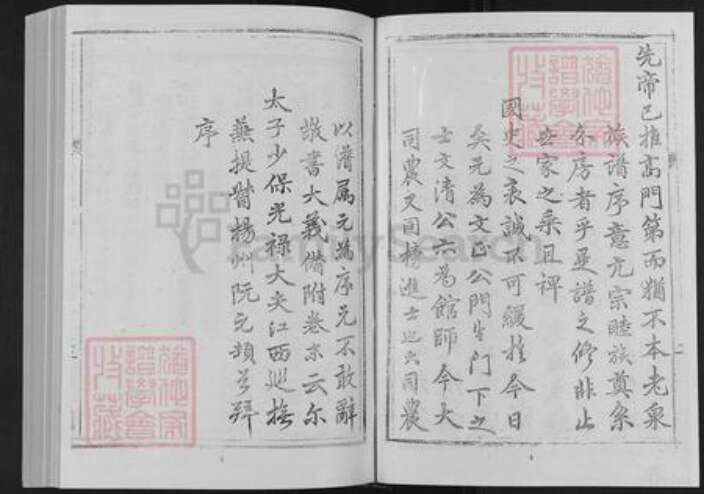 先帝已推高門第而猶不本老泉
族譜序意亢宗睦族奠系
各房者乎是譜之修非止
世家之桑且裨
國史之表誠不可緩於今日
矣元為文正公門生門下之
士文清公六為館師今大
司農又同榜進士也大司農
以譜属元為序元不敢辭
敬書大義備附卷末云尔
太子少保光禄大夫江西巡撫
兼提督揚州阮元頓首拜
序
FamilySearch